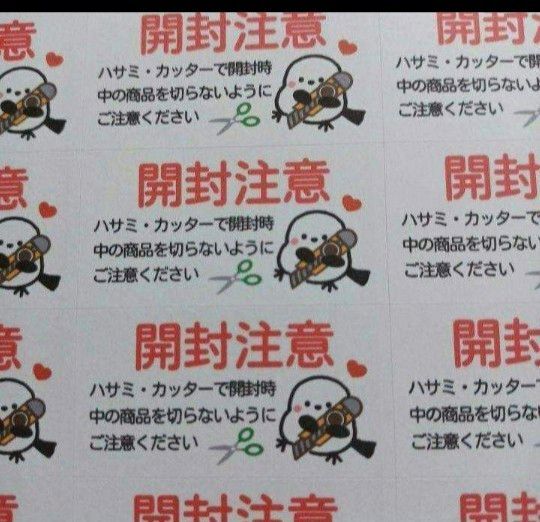 意
開封注意
ハサミ・カッターで開封時
中の商品を切らないように
ご注意ください
開封
ハサミ・カッターで開
中の商品を切らないよ
ご注意ください
意
開封注意
ハサミ・カッターで開封時
中の商品を切らないように
ご注意ください
開封
ハサミ・カッターで
中の商品を切らない
ご注意ください
意
開封注意
ハサミ・カッターで開封時
中の商品を切らないように
ご注意ください
開封
ハサミ・カッター
中の商品を切らな
ご注意ください
意
開封注意
開封